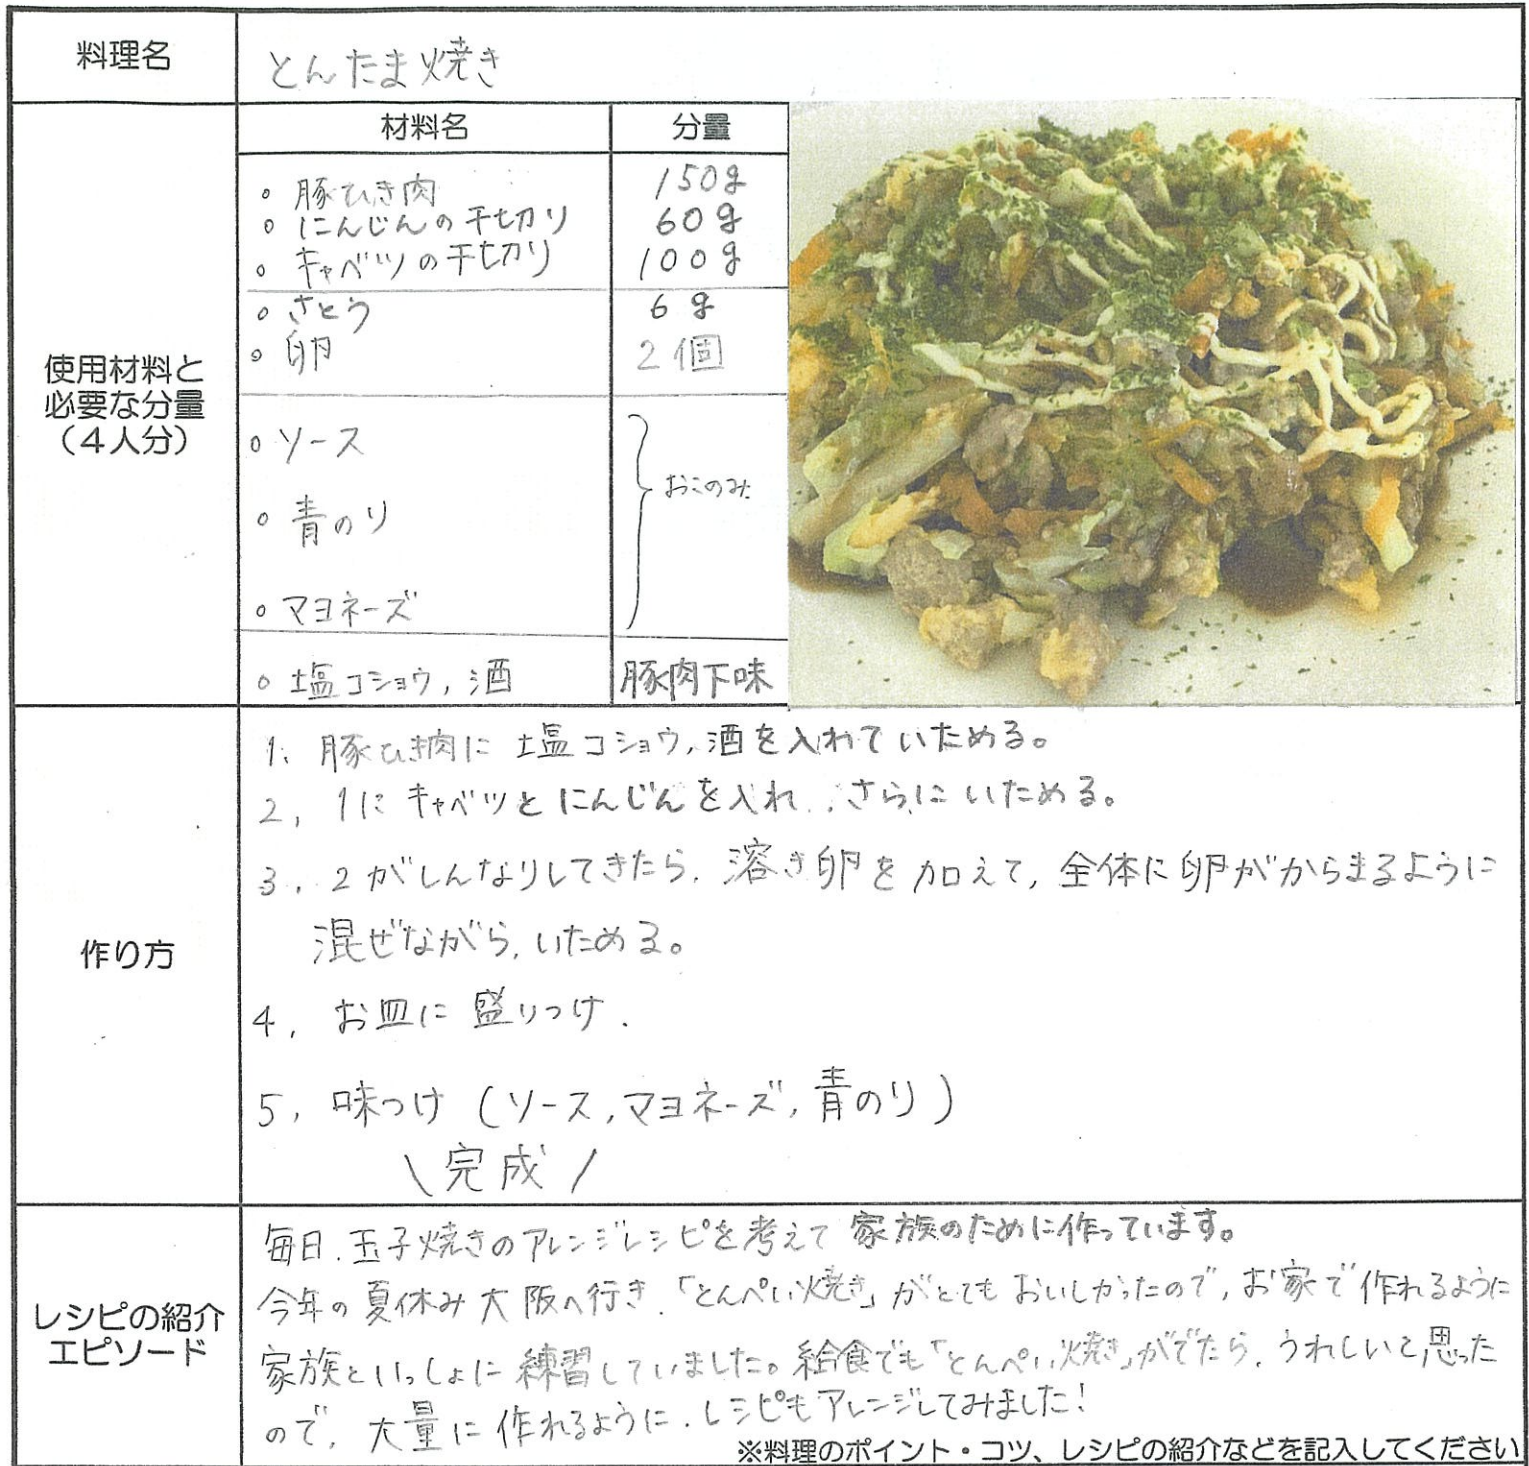 料理名
とんたま焼き
使用材料と
必要な分量
（４人分）
材料名 分量
。豚ひき肉 150g
。にんじんの千切り 60g
。キャベツの千切り 100g
。さとう 6g
。卵 2個
。ソース
。青のり
。マヨネーズ
おこのみ
。塩コショウ,酒 豚肉下味
作り方
1、豚ひき肉に塩コショウ,酒を入れていためる。
2,1にキャベツとにんじんを入れ、さらにいためる。
3,2がしんなりしてきたら、溶き卵を加えて,全体に卵がからまるように
混ぜながら,いためる。
4,お皿に盛りつけ.
5,味つけ(ソース,マヨネーズ,青のり)
\完成/
レシピの紹介
エピソード
毎日、玉子焼きのアレンジレシピを考えて家族のために作っています。
今年の夏休み大阪へ行き、「とんぺい焼き」がとてもおいしかったので,お家で作れるように
家族といっしょに練習していました。給食でも「とんぺい焼き」がでたら、うれしいと思った
ので,大量に作れるように、レシピもアレンジしてみました!
※料理のポイント・コツ、レシピの紹介などを記入してください